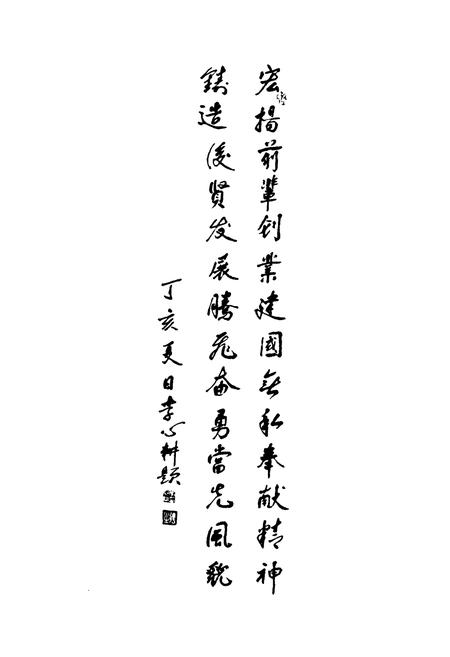 宏揚前輩创業建國無私奉献精神
鋳造後賢发展騰飛奋勇當先風貌
丁亥夏日李心耕題